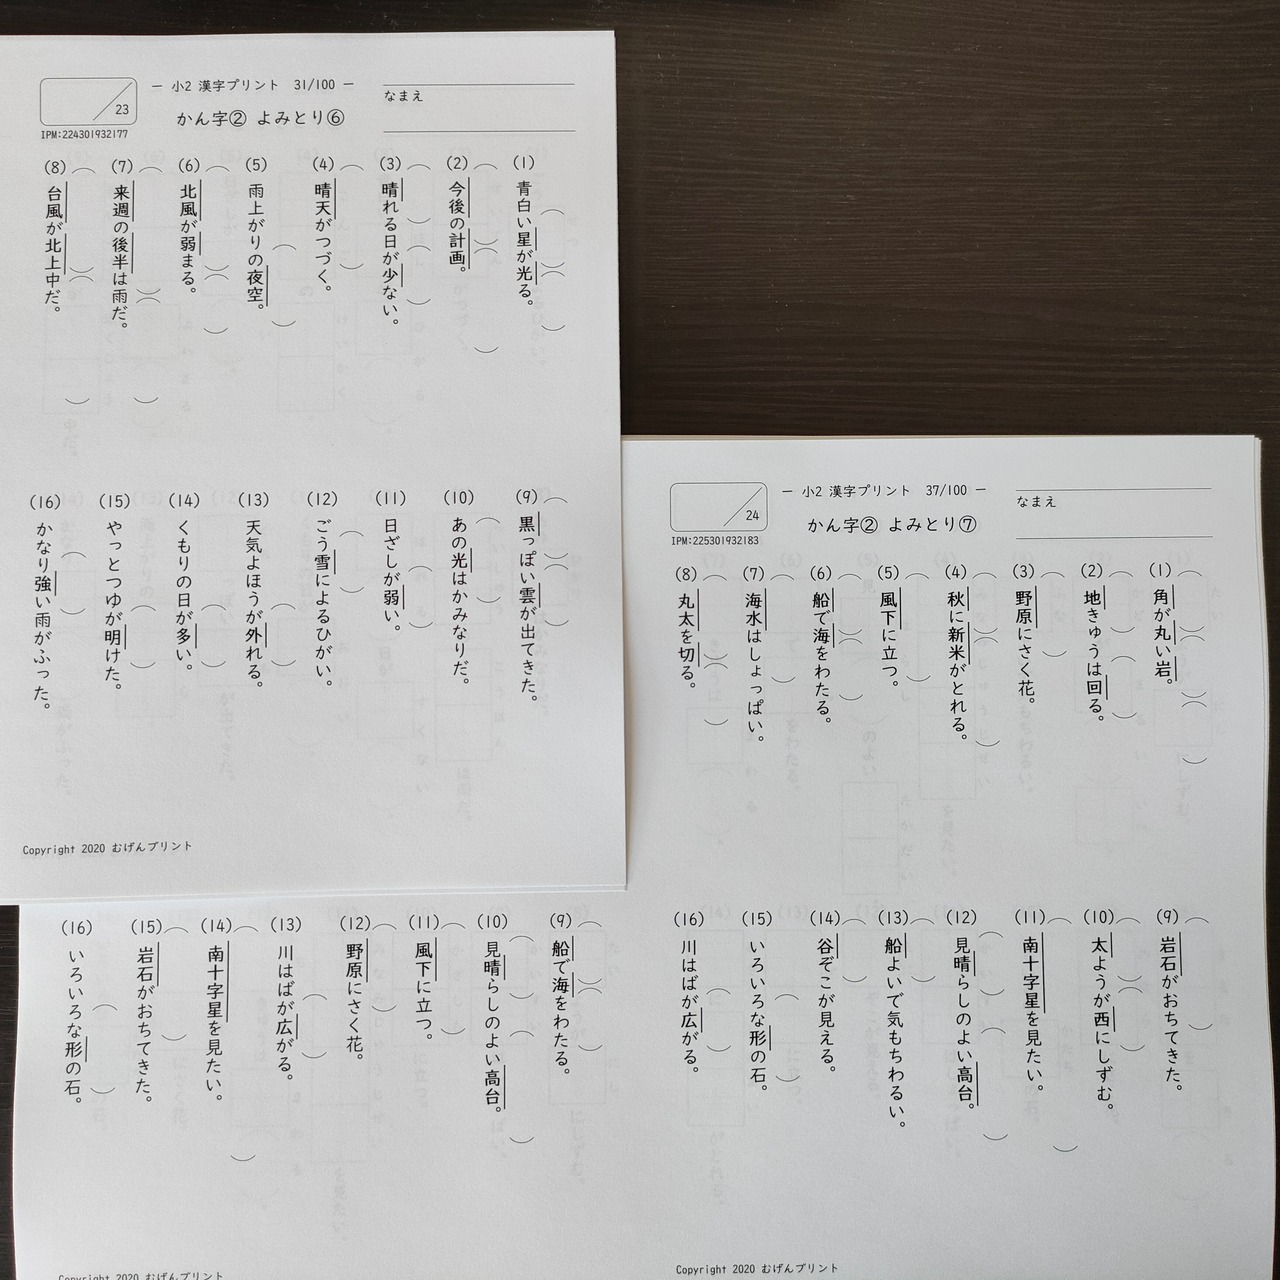 23
IPM:224301932177
− 小2 漢字プリント 31/100 −
かん字② よみとり⑥
なまえ
(1) 青白い星が光る。
(2) 今後の計画。
(3) 晴れる日が少ない。
(4) 晴天がつづく。
(5) 雨上がりの夜空。
(6) 北風が弱まる。
(7) 来週の後半は雨だ。
(8) 台風が北上中だ。
(9) 黒っぽい雲が出てきた。
(10) あの光はかみなりだ。
(11) 日ざしが弱い。
(12) ごう雪によるひがい。
(13) 天気よほうが外れる。
(14) くもりの日が多い。
(15) やっとつゆが明けた。
(16) かなり強い雨がふった。
Copyright 2020 むげんプリント
24
IPM:225301932183
− 小2 漢字プリント 37/100 −
かん字② よみとり⑦
なまえ
(1) 角が丸い岩。
(2) 地きゅうは回る。
(3) 野原にさく花。
(4) 秋に新米がとれる。
(5) 風下に立つ。
(6) 船で海をわたる。
(7) 海水はしょっぱい。
(8) 丸太を切る。
(9) 岩石がおちてきた。
(10) 太ようが西にしずむ。
(11) 南十字星を見たい。
(12) 見晴らしのよい高台。
(13) 船よいで気もちわるい。
(14) 谷ぞこが見える。
(15) いろいろな形の石。
(16) 川はばが広がる。
Copyright 2020 むげんプリント
(9) 船で海をわたる。
(10) 見晴らしのよい高台。
(11) 風下に立つ。
(12) 野原にさく花。
(13) 川はばが広がる。
(14) 南十字星を見たい。
(15) 岩石がおちてきた。
(16) いろいろな形の石。
Copyright 2020 むげんプリント